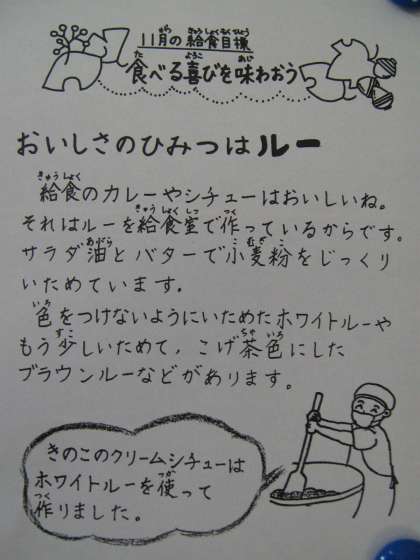 11月の給食目標
食べる喜びを味わおう
おいしさのひみつはルー
給食のカレーやシチューはおいしいね。
それはルーを給食室で作っているからです。
サラダ油とバターで小麦粉をじっくり
いためています。
色をつけないようにいためたホワイトルーや
もう少しいためて、こげ茶色にした
ブラウンルーなどがあります。
きのこのクリームシチューは
ホワイトルーを使って
作りました。